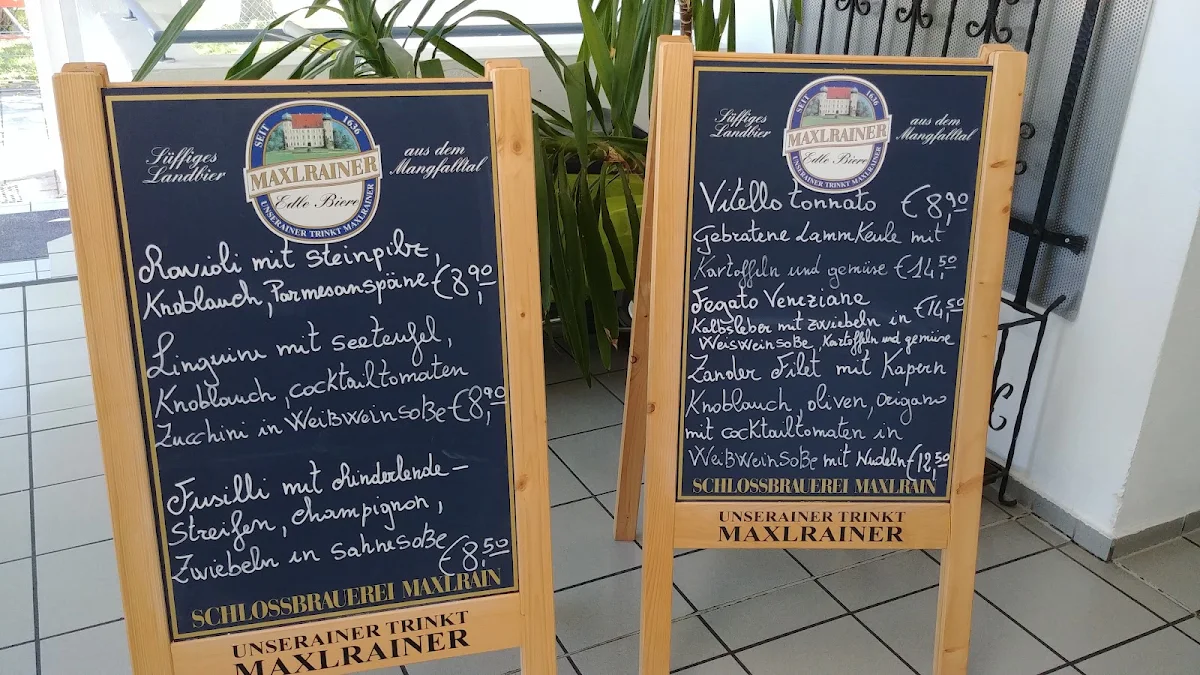 Süffiges
Landbier
SEIT 1636
MAXLRAINER
Edle Biere
UNSERAINER TRINKT MAXLRAINER
aus dem
Mangfalltal
Ravioli mit steinpilz,
Knoblauch, Parmesanspäne €8,90
Linguini mit seeteufel,
Knoblauch, cocktailtomaten
Zucchini in Weißweinsoße €8,90
Fusilli mit Rinderlende-
streifen, champignon,
Zwiebeln in sahnesoße €8,50
SCHLOSSBRAUEREI MAXLRAIN
UNSERAINER TRINKT
MAXLRAINER
Süffiges
Landbier
SEIT 1636
MAXLRAINER
Edle Biere
UNSERAINER TRINKT MAXLRAINER
aus dem
Mangfalltal
Vitello tonnato €8,90
Gebratene Lammkeule mit
Kartoffeln und gemüse €14,50
Fegato Veneziana
Kalbsleber mit zwiebeln in €14,50
Weisweinsoße, Kartoffeln und gemüse
Zander Filet mit Kapern
Knoblauch, oliven, origano
mit cocktailtomaten in
Weißweinsoße mit Nudeln €12,50
SCHLOSSBRAUEREI MAXLRAIN
UNSERAINER TRINKT
MAXLRAINER